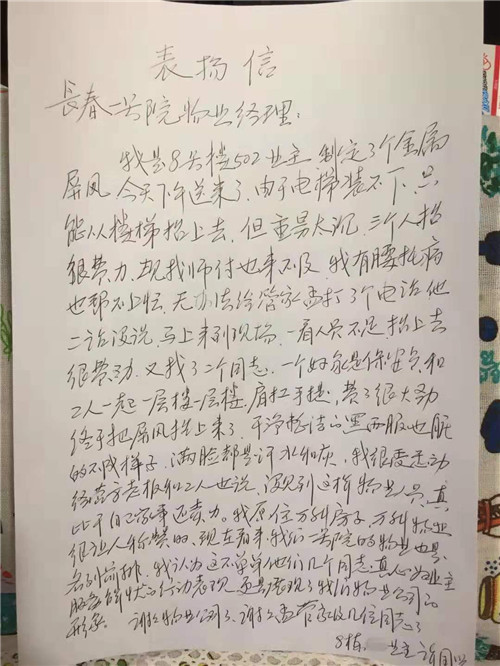 表扬信
长春一号院物业经理：
我是8号楼502业主 制定了个金属
屏风 今天下午送来了，由于电梯装不下，只
能从楼梯抬上去，但重量太沉，三个人抬
很费力，现找师付也来不及 我有腰托病
也帮不上忙，无办法给管家孟打了个电话他
二话没说，马上来到现场，一看人员不足，抬上去
很费劲，又找了二个同志，一个好象是保安员，和
工人一起一层楼一层楼，肩扛手提，费了很大劲
终于把屏风抬上来了，干净整洁的黑西服也脏
的不成样子，满脸都是汗水和灰，我很受感动
经营方老板和工人也说，没见到这样物业人员，真
比干自己家事还卖力。我原住万科房子，万科物业
很让人称赞的，现在看来我们一号院的物业也是
名列前排，我认为这不单单他们几个同志，真心为业主
服务解忧的行动表现，还是展现了我们物业公司的
形象。 谢谢物业公司了，谢谢孟管家及几位同志了
8栋 业主 许